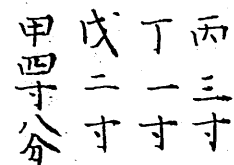 丙三寸
丁一寸
戊二寸
甲四寸八分